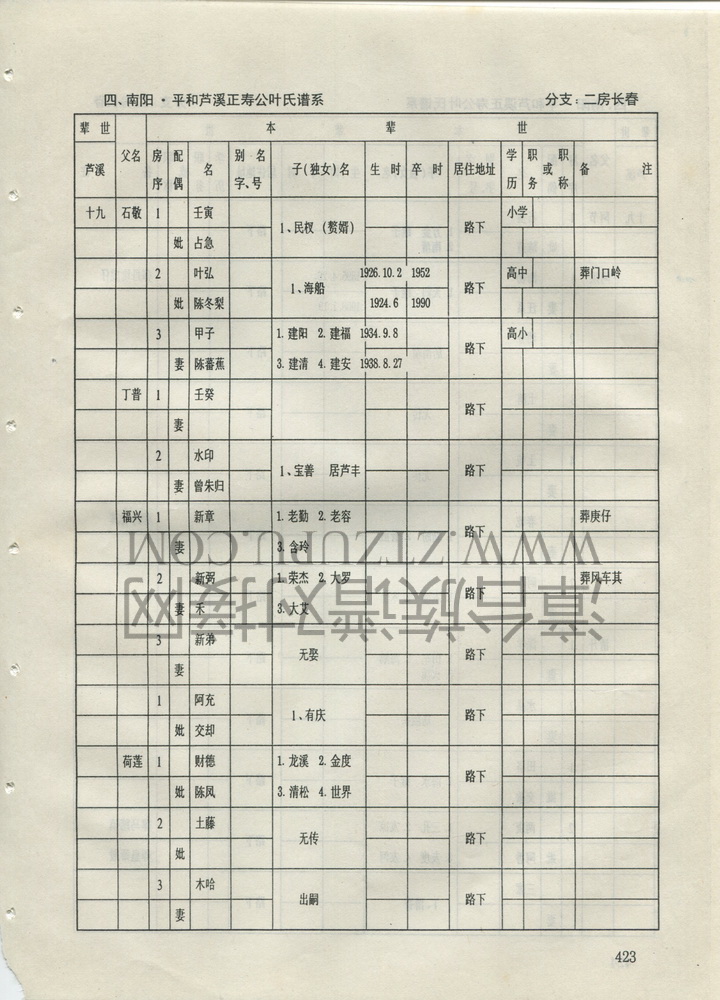 四、南阳·平和芦溪正寿公叶氏谱系 分支：二房长春
辈世 父名 本 辈 世
芦溪 房序 配偶 名 别名字、号 子(独女)名 生时 卒时 居住地址 学历 职务或职称 备注
十九 石敬 1 壬寅 1、民杈（赘婿） 路下 小学
妣 占急
2 叶弘 1、海船 1926.10.2 1952 路下 高中 葬门口岭
妣 陈冬梨 1924.6 1990
3 甲子 1.建阳 2.建福 1934.9.8 路下 高小
妻 陈蕃蕉 3.建清 4.建安 1938.8.27
丁普 1 壬癸 路下
妻
2 水印 1、宝善 居芦丰 路下
妻 曾朱归
福兴 1 新章 1.老勤 2.老容 路下 葬庚仔
妻 3.含玲
2 新弼 1.荣杰 2.大罗 路下 葬风车其
妻 禾 3.大艾
3 新弟 无娶 路下
妻
1 阿充 1、有庆 路下
妣 交却
荷莲 1 财德 1.龙溪 2.金度 路下
妣 陈凤 3.清松 4.世界
2 土藤 无传 路下
妣
3 木哈 出嗣 路下
妻
WWW.ZTZUPU.COM
漳台族谱对接网
423